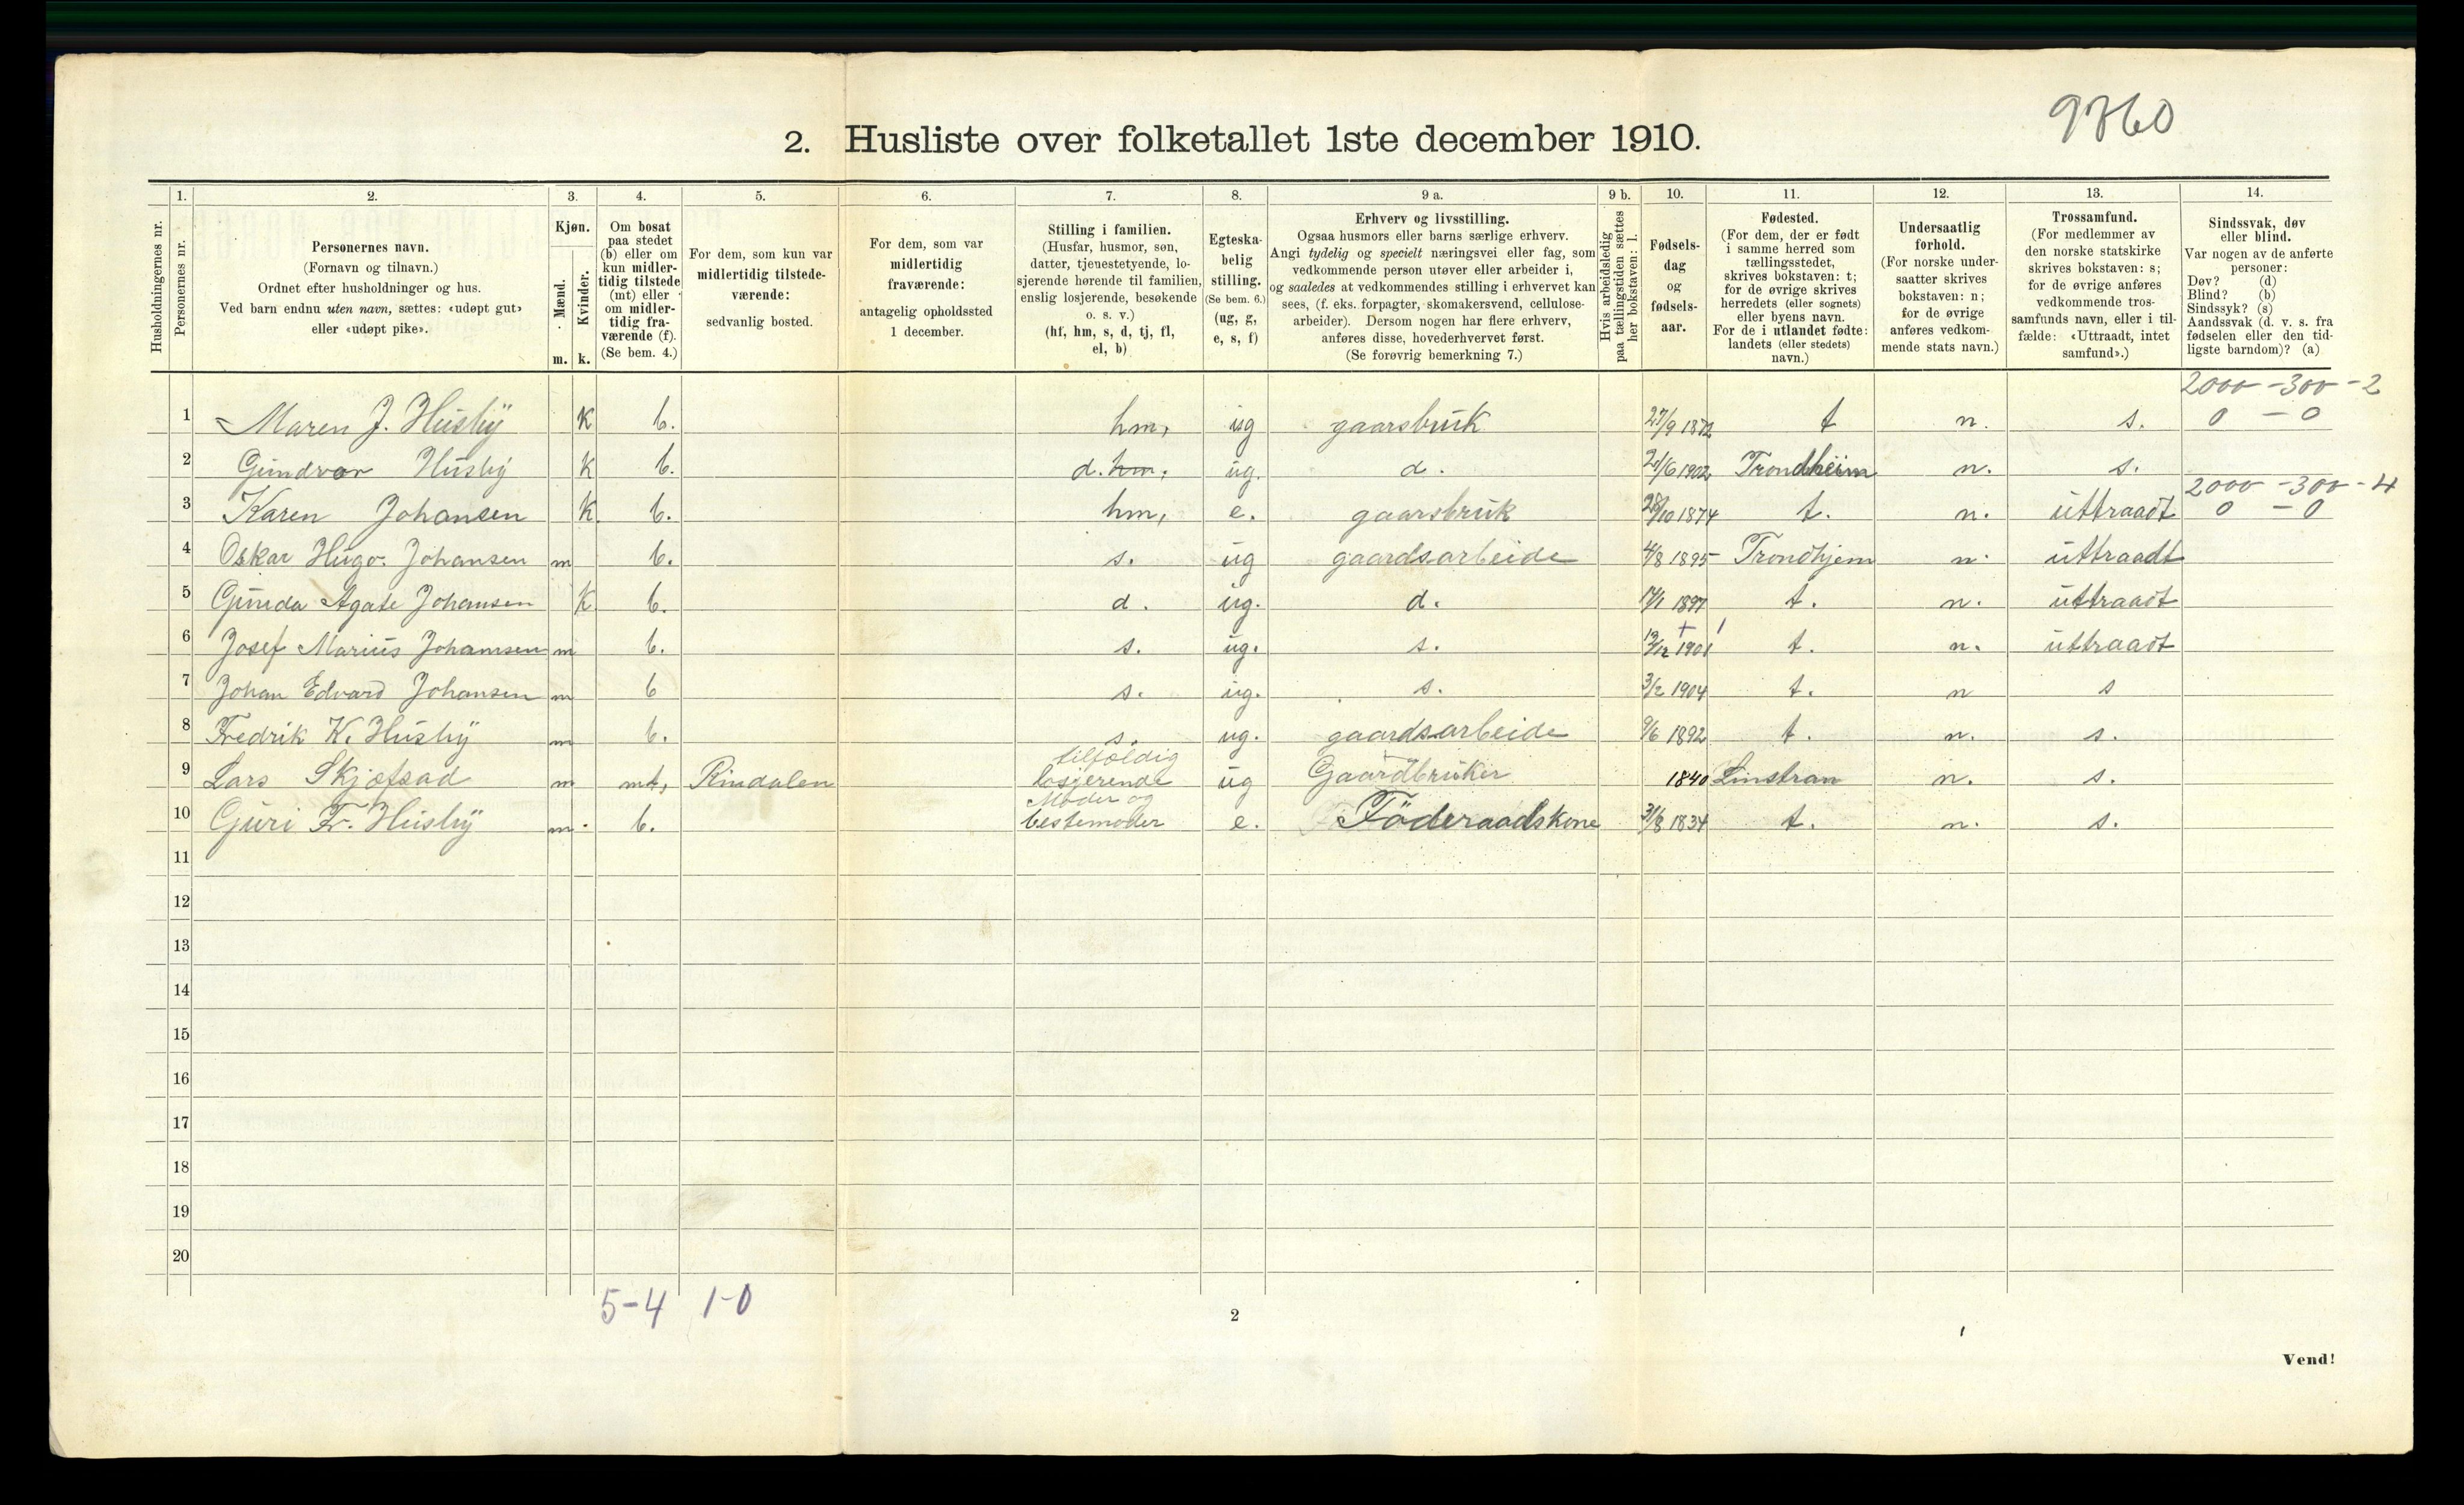 9760
2. Husliste over folketallet 1ste december 1910.
Husholdningernes nr.
1.
Personernes nr.
2.
Personernes navn.
(Fornavn og tilnavn.)
Ordnet efter husholdninger og hus.
Ved barn endnu uten navn, sættes: «udøpt gut»
eller «udøpt pike».
3.
Kjøn.
Mænd.
Kvinder.
m. k.
4.
Om bosat
paa stedet
(b) eller om
kun midler-
tidig tilstede
(mt) eller
om midler-
tidig fra-
værende (f).
(Se bem. 4.)
5.
For dem, som kun var
midlertidig tilstede-
værende:
sedvanlig bosted.
6.
For dem, som var
midlertidig
fraværende:
antagelig opholdssted
1 december.
7.
Stilling i familien.
(Husfar, husmor, søn,
datter, tjenestetyende, lo-
sjerende hørende til familien,
enslig losjerende, besøkende
o. s. v.)
(hf, hm, s, d, tj, fl,
el, b)
8.
Egteska-
belig
stilling.
(Se bem. 6.)
(ug, g,
e, s, f)
9 a.
Erhverv og livsstilling.
Ogsaa husmors eller barns særlige erhverv.
Angi tydelig og specielt næringsvei eller fag, som
vedkommende person utøver eller arbeider i,
og saaledes at vedkommendes stilling i erhvervet kan
sees, (f. eks. forpagter, skomakersvend, cellulose-
arbeider). Dersom nogen har flere erhverv,
anføres disse, hovederhvervet først.
(Se forøvrig bemerkning 7.)
9 b.
Hvis arbeidsledig
paa tællingstiden sættes
her bokstaven: l.
10.
Fødsels-
dag
og
fødsels-
aar.
11.
Fødested.
(For dem, der er født
i samme herred som
tællingsstedet,
skrives bokstaven: t;
for de øvrige skrives
herredets (eller sognets)
eller byens navn.
For de i utlandet fødte:
landets (eller stedets)
navn.)
12.
Undersaatlig
forhold.
(For norske under-
saatter skrives
bokstaven: n;
for de øvrige
anføres vedkom-
mende stats navn.)
13.
Trossamfund.
(For medlemmer av
den norske statskirke
skrives bokstaven: s;
for de øvrige anføres
vedkommende tros-
samfunds navn, eller i til-
fælde: «Uttraadt, intet
samfund».)
14.
Sindssvak, døv
eller blind.
Var nogen av de anførte
personer:
Døv? (d)
Blind? (b)
Sindssyk? (s)
Aandssvak (d. v. s. fra
fødselen eller den tid-
ligste barndom)? (a)
2000 - 300 - 2
1 Maren J. Husby k b. hm, ug gaarsbruk 27/9 1872 t n. s. 0 - 0
2 Gundvor Husby k b. d. hm. ug. d. 20/6 1902 Trondheim n. s.
2000 - 300 - 4
3 Karen Johansen k. b. hm, e. gaarsbruk 28/10 1874 t. n. uttraadt 0 - 0
4 Oskar Hugo. Johansen m b. s. ug gaardsarbeide 4/8 1895 Trondhjem n. uttraadt
5 Gunda Agate Johansen k b. d. ug. d. 14/1 1897 t. n. uttraadt
6 Josef Marius Johansen m b. s. ug. s. 13/12 1901 t. n. uttraadt
7 Johan Edvard Johansen m b s. ug. s. 3/2 1904 t. n s
8 Fredrik K. Husby m b. s. ug. gaardsarbeide 9/6 1892 t. n. s.
tilfoldig
9 Lars Skjøtsad m mt, Rindalen losjerende ug Gaardbruker 1840 Linstran n. s.
Moder og
10 Guri Fr. Husby m. b. bestemoder e. Föderaadskone 31/8 1834 t. n. s.
11
12
13
14
15
16
17
18
19
20
5-4 1-0
2
Vend!